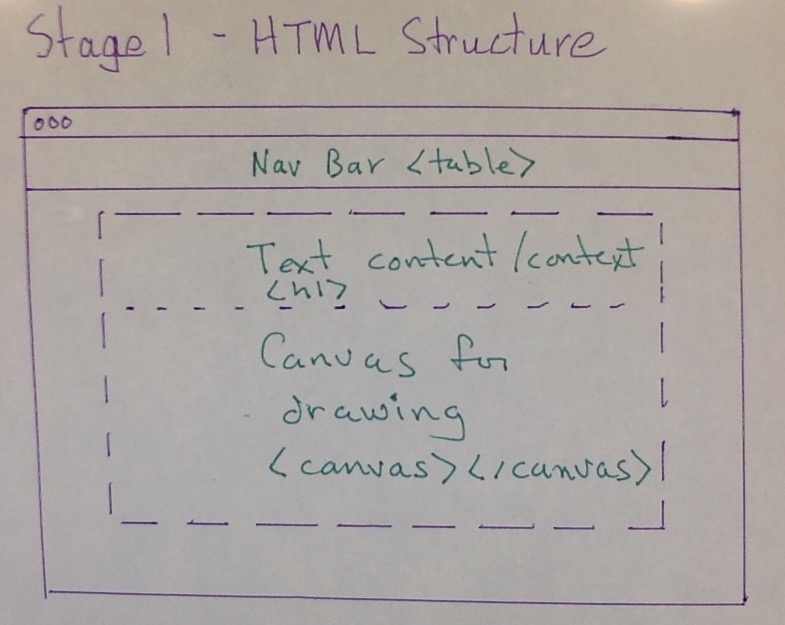 Stage 1 - HTML Structure
ooo
Nav Bar <table>
Text content/context
<h1>
Canvas for
drawing
<canvas></canvas>